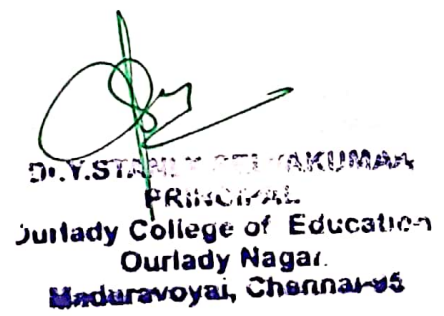 Dr.Y.STANLY SELVAKUMAR
PRINCIPAL
Ourlady College of Education
Ourlady Nagar.
Maduravoyal, Chennai-95